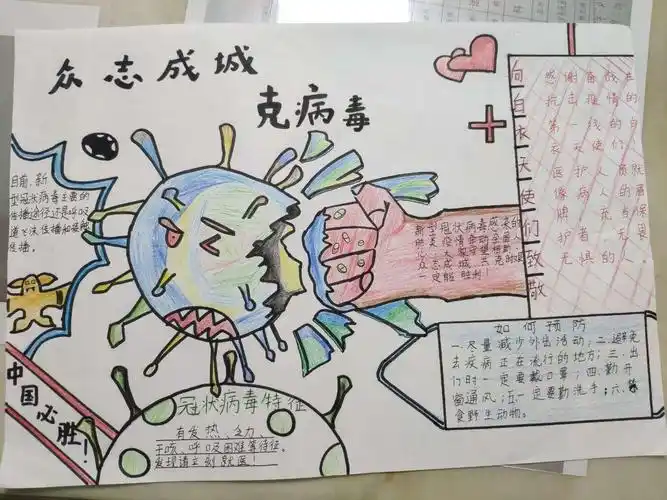 众志成城
克病毒
目前,新
型冠状病毒主要的
传播途径还是呼吸
道飞沫传播和接触
传播。
中国必胜!
冠状病毒特征
有发热、乏力、
干咳、呼吸困难等特征,
发现请立刻就医!
新型冠状病毒感染的
一定能胜利!
向白衣天使们致敬
感谢奋战在
抗击疫情的
第一线的白
衣天使们
医护人员就
像病人的盾
牌
护者 无畏
无惧的人
如何预防
一.尽量减少外出活动;二.避免
去疫病正在流行的地方;三.出
门时一定要戴口罩;四.勤开
窗通风;五.一定要勤洗手;六.
食野生动物。